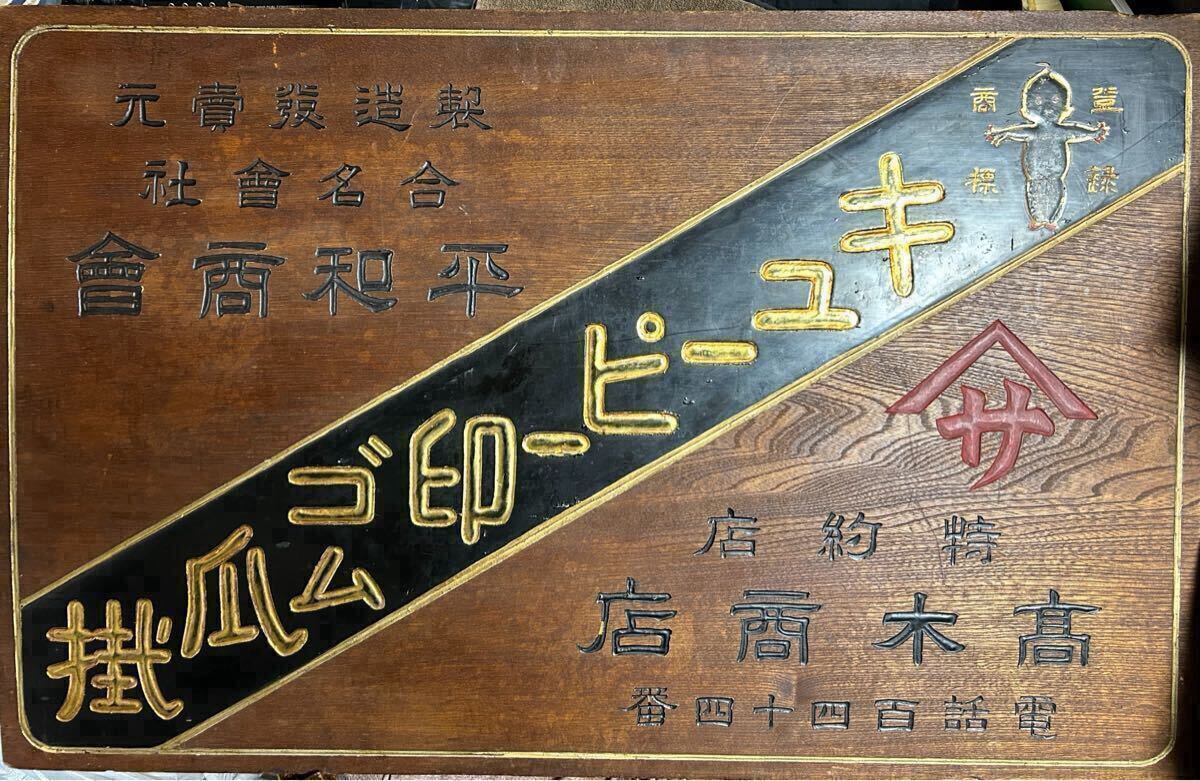 登録
商標
キユーピー印ゴム爪掛
製造發賣元
合名會社
平和商會
サ
特約店
髙木商店
電話百四十四番